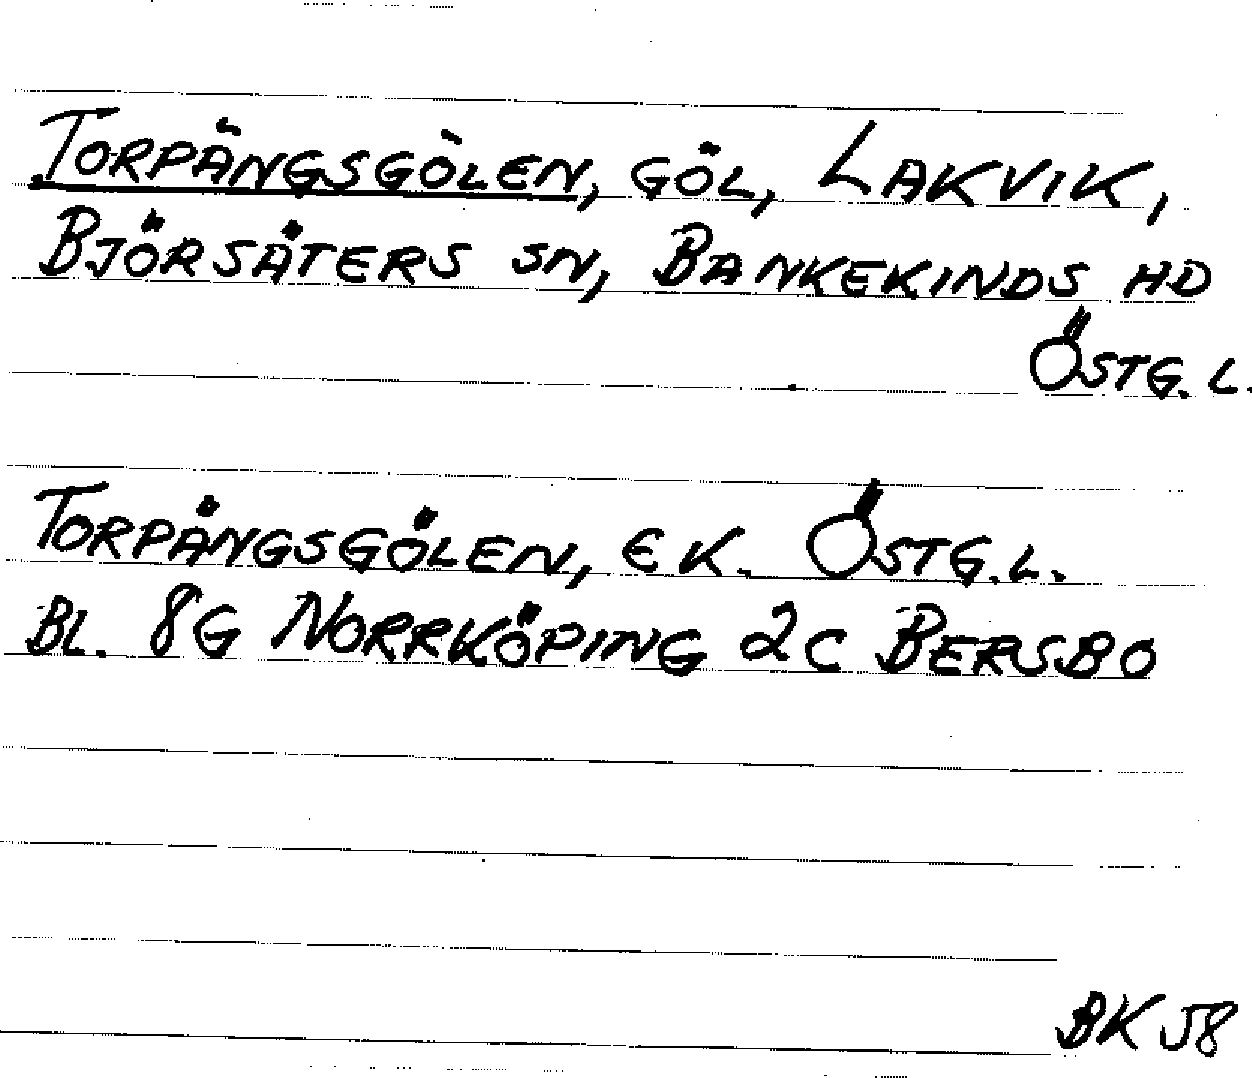 TORPÄNGSGÖLEN, GÖL, LAKVIK,
BJÖRSÄTERS SN, BANKEKINDS HD
ÖSTG. L.
TORPÄNGSGÖLEN, EK. ÖSTG.L.
BL. 8G NORRKÖPING 2C BERSBO
BK 58